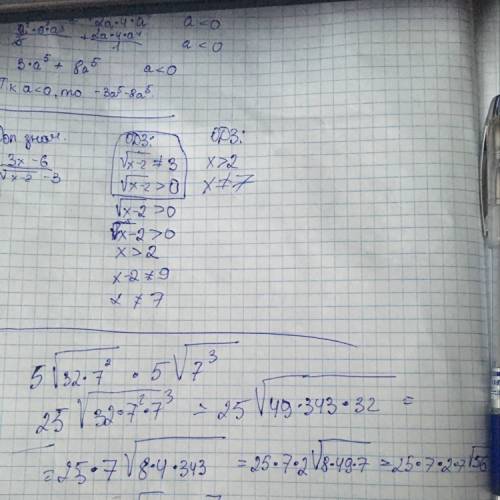 2a·4·a a<0
+ 2a·4·a⁴ / 1 a<0
3·a⁵ + 8a⁵ a<0
Тк a<0, то -3a⁵-8a⁵
Доп. знач. ОДЗ: ОДЗ:
3x-6 / √x-2 -3 √x-2 ≠ 3 x>2
√x-2 > 0 x≠7
√x-2 > 0
√x-2 > 0
x > 2
x-2 ≠ 9
x ≠ 7
5√32·7² · 5√7³
25√32·7²·7³ = 25√49·343·32 =
= 25·7√8·4·343 = 25·7·2√8·49·7 = 25·7·2·7√56